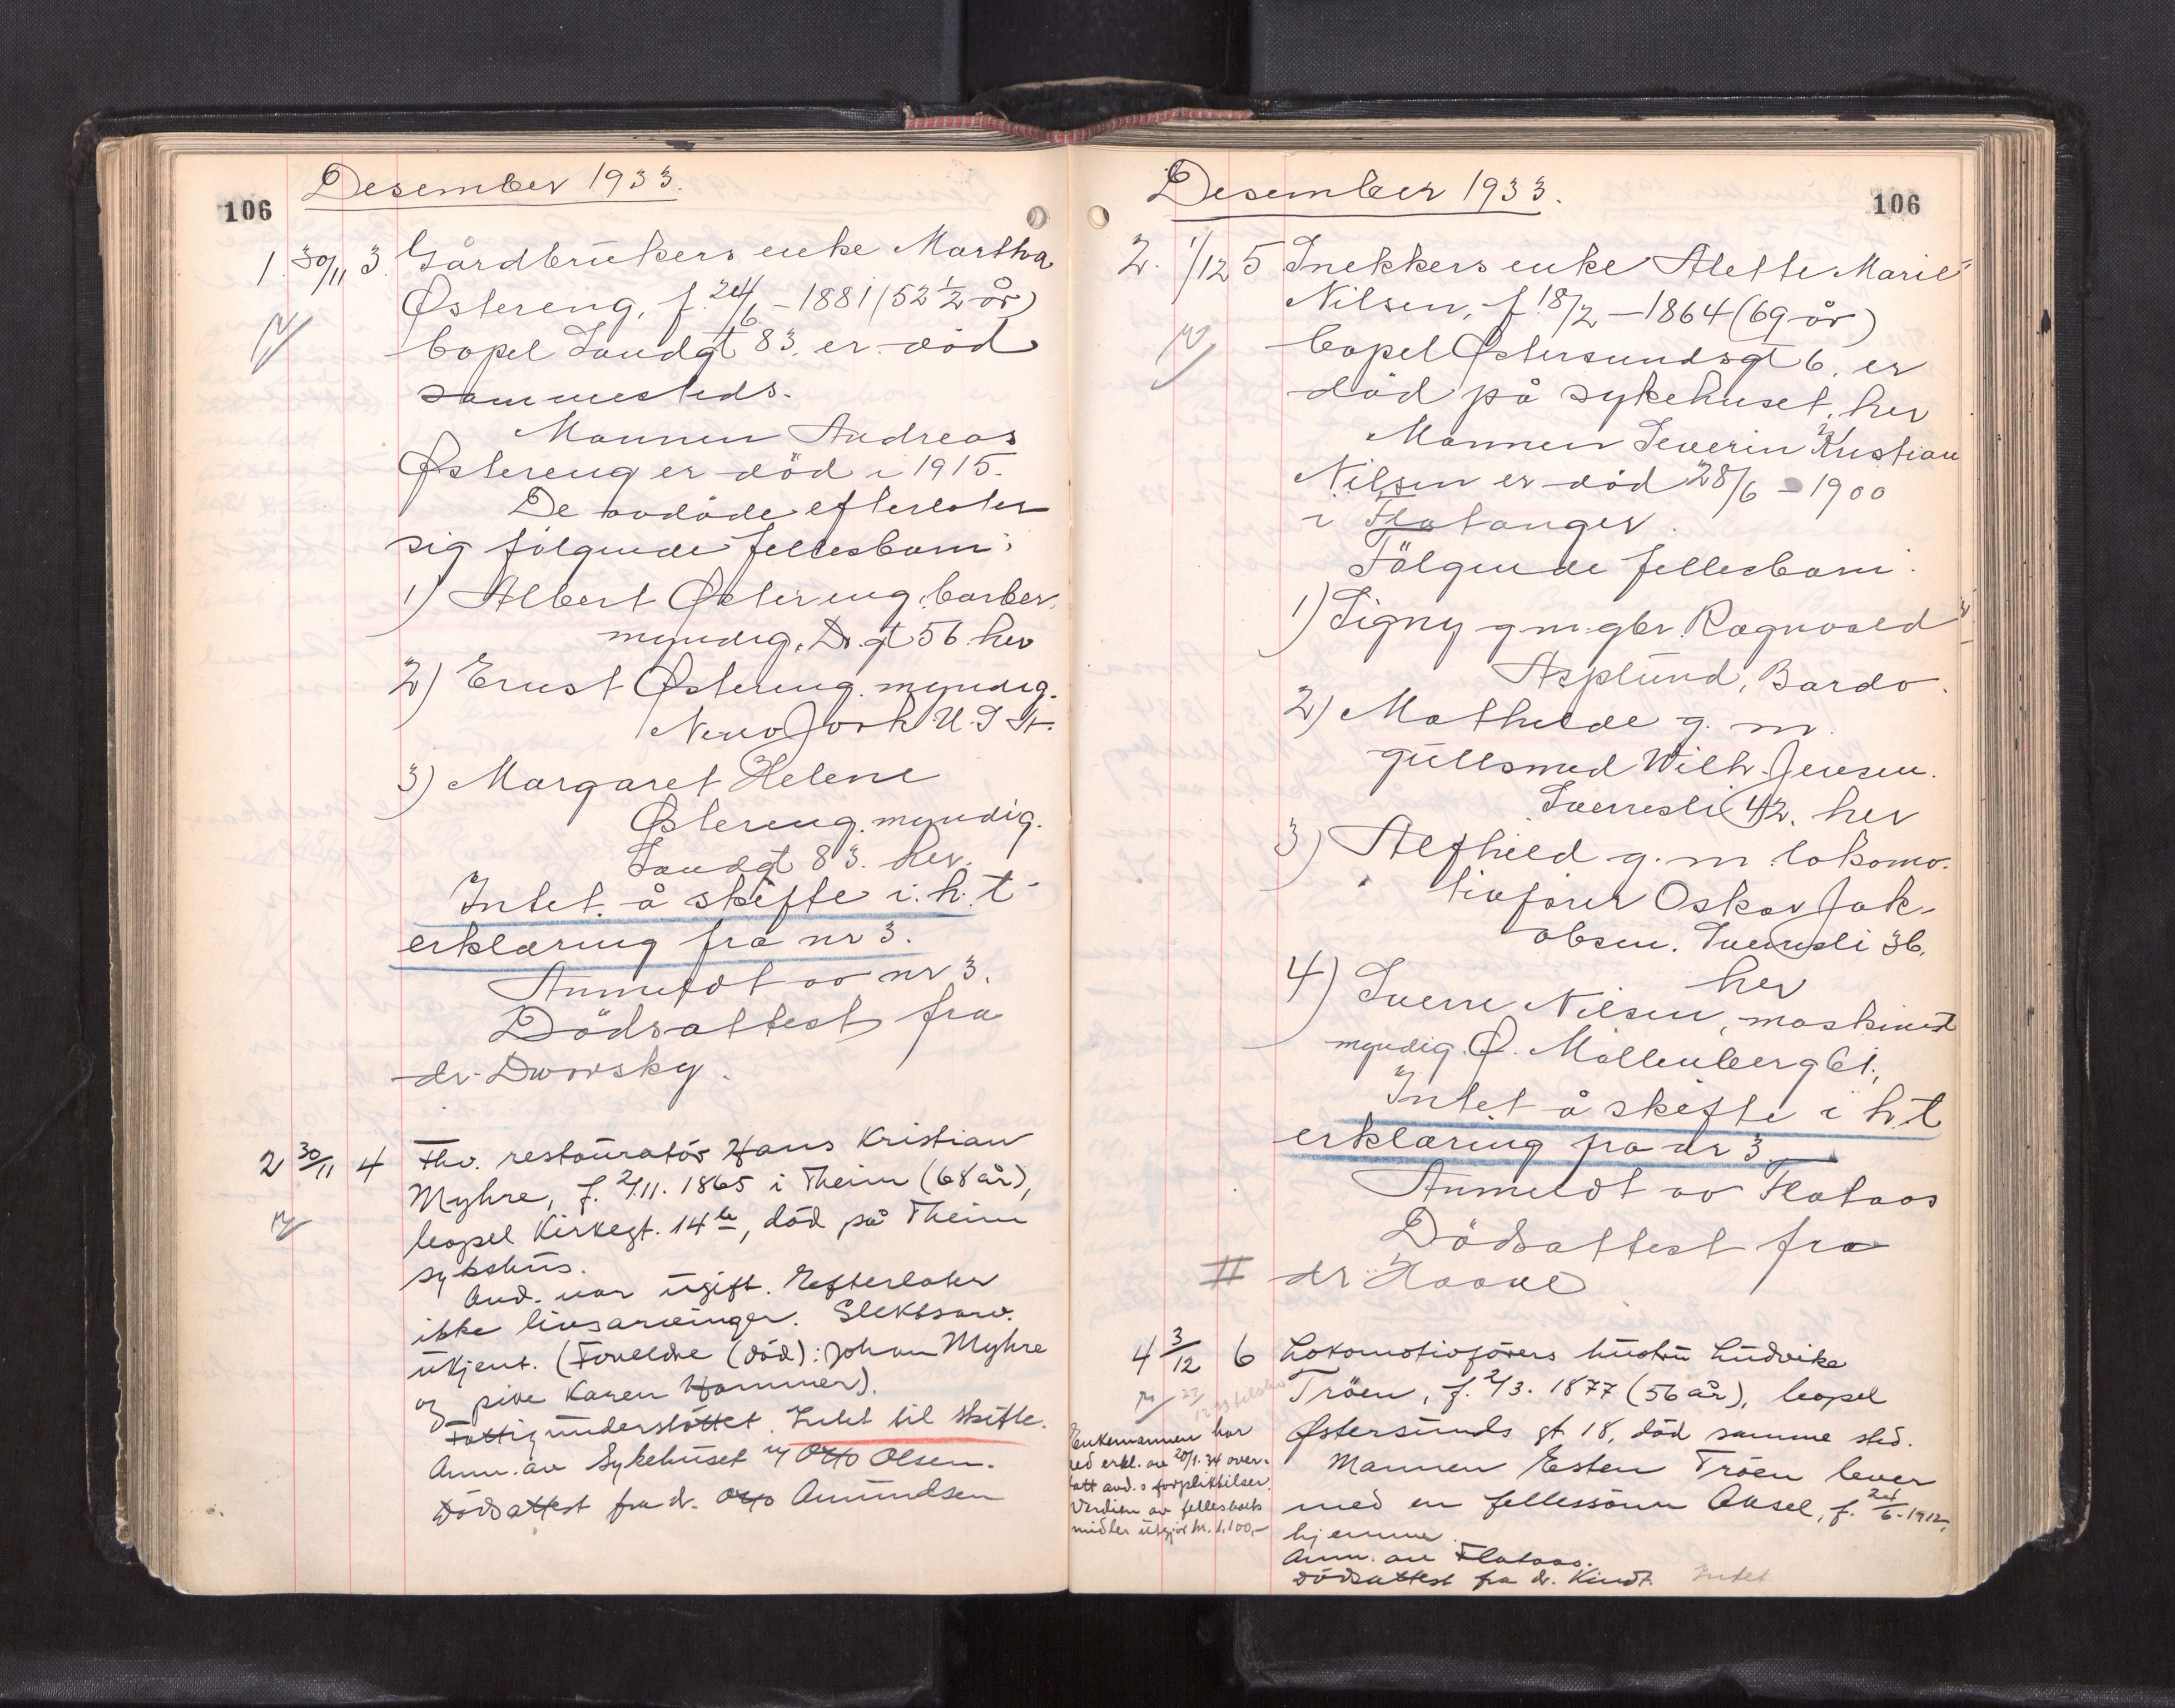 Desember 1933.
106
1. 30/11 3. Gårdbrukers enke Martha
Østereng, f. 24/6 - 1881 (52 1/2 år)
bopel Sandgt 83. er død
sammesteds.
Mannen Andreas
Østereng er död i 1915.
De avdöde efterlater
sig fölgende fellesbarn:
1) Albert Østereng, barber,
myndig, Dr. gt 56. her
2) Ernst Østereng. myndig.
New York U. S St.
3) Margaret Helene
Østereng. myndig.
Sandgt 83. her.
Intet å skifte i. h. t
erklæring fra nr 3.
Anmeldt av nr 3.
Dödsattest fra
dr. Dworsky.
2 30/11 4 Fhv. restauratör Hans Kristian
Myhre, f. 2/11. 1865 i Theim (68 år),
bopel Kirkegt. 14 b, död på Theim
sykehus.
Avd. var ugift. Efterlater
ikke livsarvinger. Slektsarv.
ukjent. (Foreldre (död): Johan Myhre
og pike Karen Hammer).
Fattigunderstöttet. Intet til skifte.
Anm. av Sykehuset v/ Otto Olsen.
Dödsattest fra dr. Otto Amundsen
Desember 1933.
106
2. 1/12 5 Snekkers enke Alette Marie
Nilsen, f. 18/2 - 1864 (69 år)
bopel Østersundsgt 6. er
död på sykehuset, her
Mannen Severin Kristian
Nilsen er död 28/6 - 1900
i Flatanger.
Fölgende fellesbarn:
1) Signy g. m. gbr. Ragnvald
Asplund, Bardo.
2) Mathilde g. m.
gullsmed Wilh. Jensen.
Sverresli 42. her
3) Alfhild g. m. lokomo-
tivförer Oskar Jak-
obsen. Sverresli 36.
her
4) Sverre Nilsen, maskinist
myndig. Ø. Möllenberg 61.,
Intet å skifte i h. t
erklæring fra nr 3.
Anmeldt av Flataas
Dödsattest fra
dr. Haave
4 3/12 6 Lokomotivförers hustru Ludvika
Tröen, f. 2/3. 1877 (56 år), bopel
Østersunds gt. 18, död samme sted.
Mannen Esten Tröen lever
med en fellessönn Aksel, f. 24/6 - 1912,
hjemme.
Anm. av Flataas.
Dödsattest fra dr. Kindt. Intet
Enkemannen har
ved erkl. av 20/1. 34 over-
tatt avd.s forpliktelser.
Verdien av fellesboets
midler utgjør kr. 1.100,-